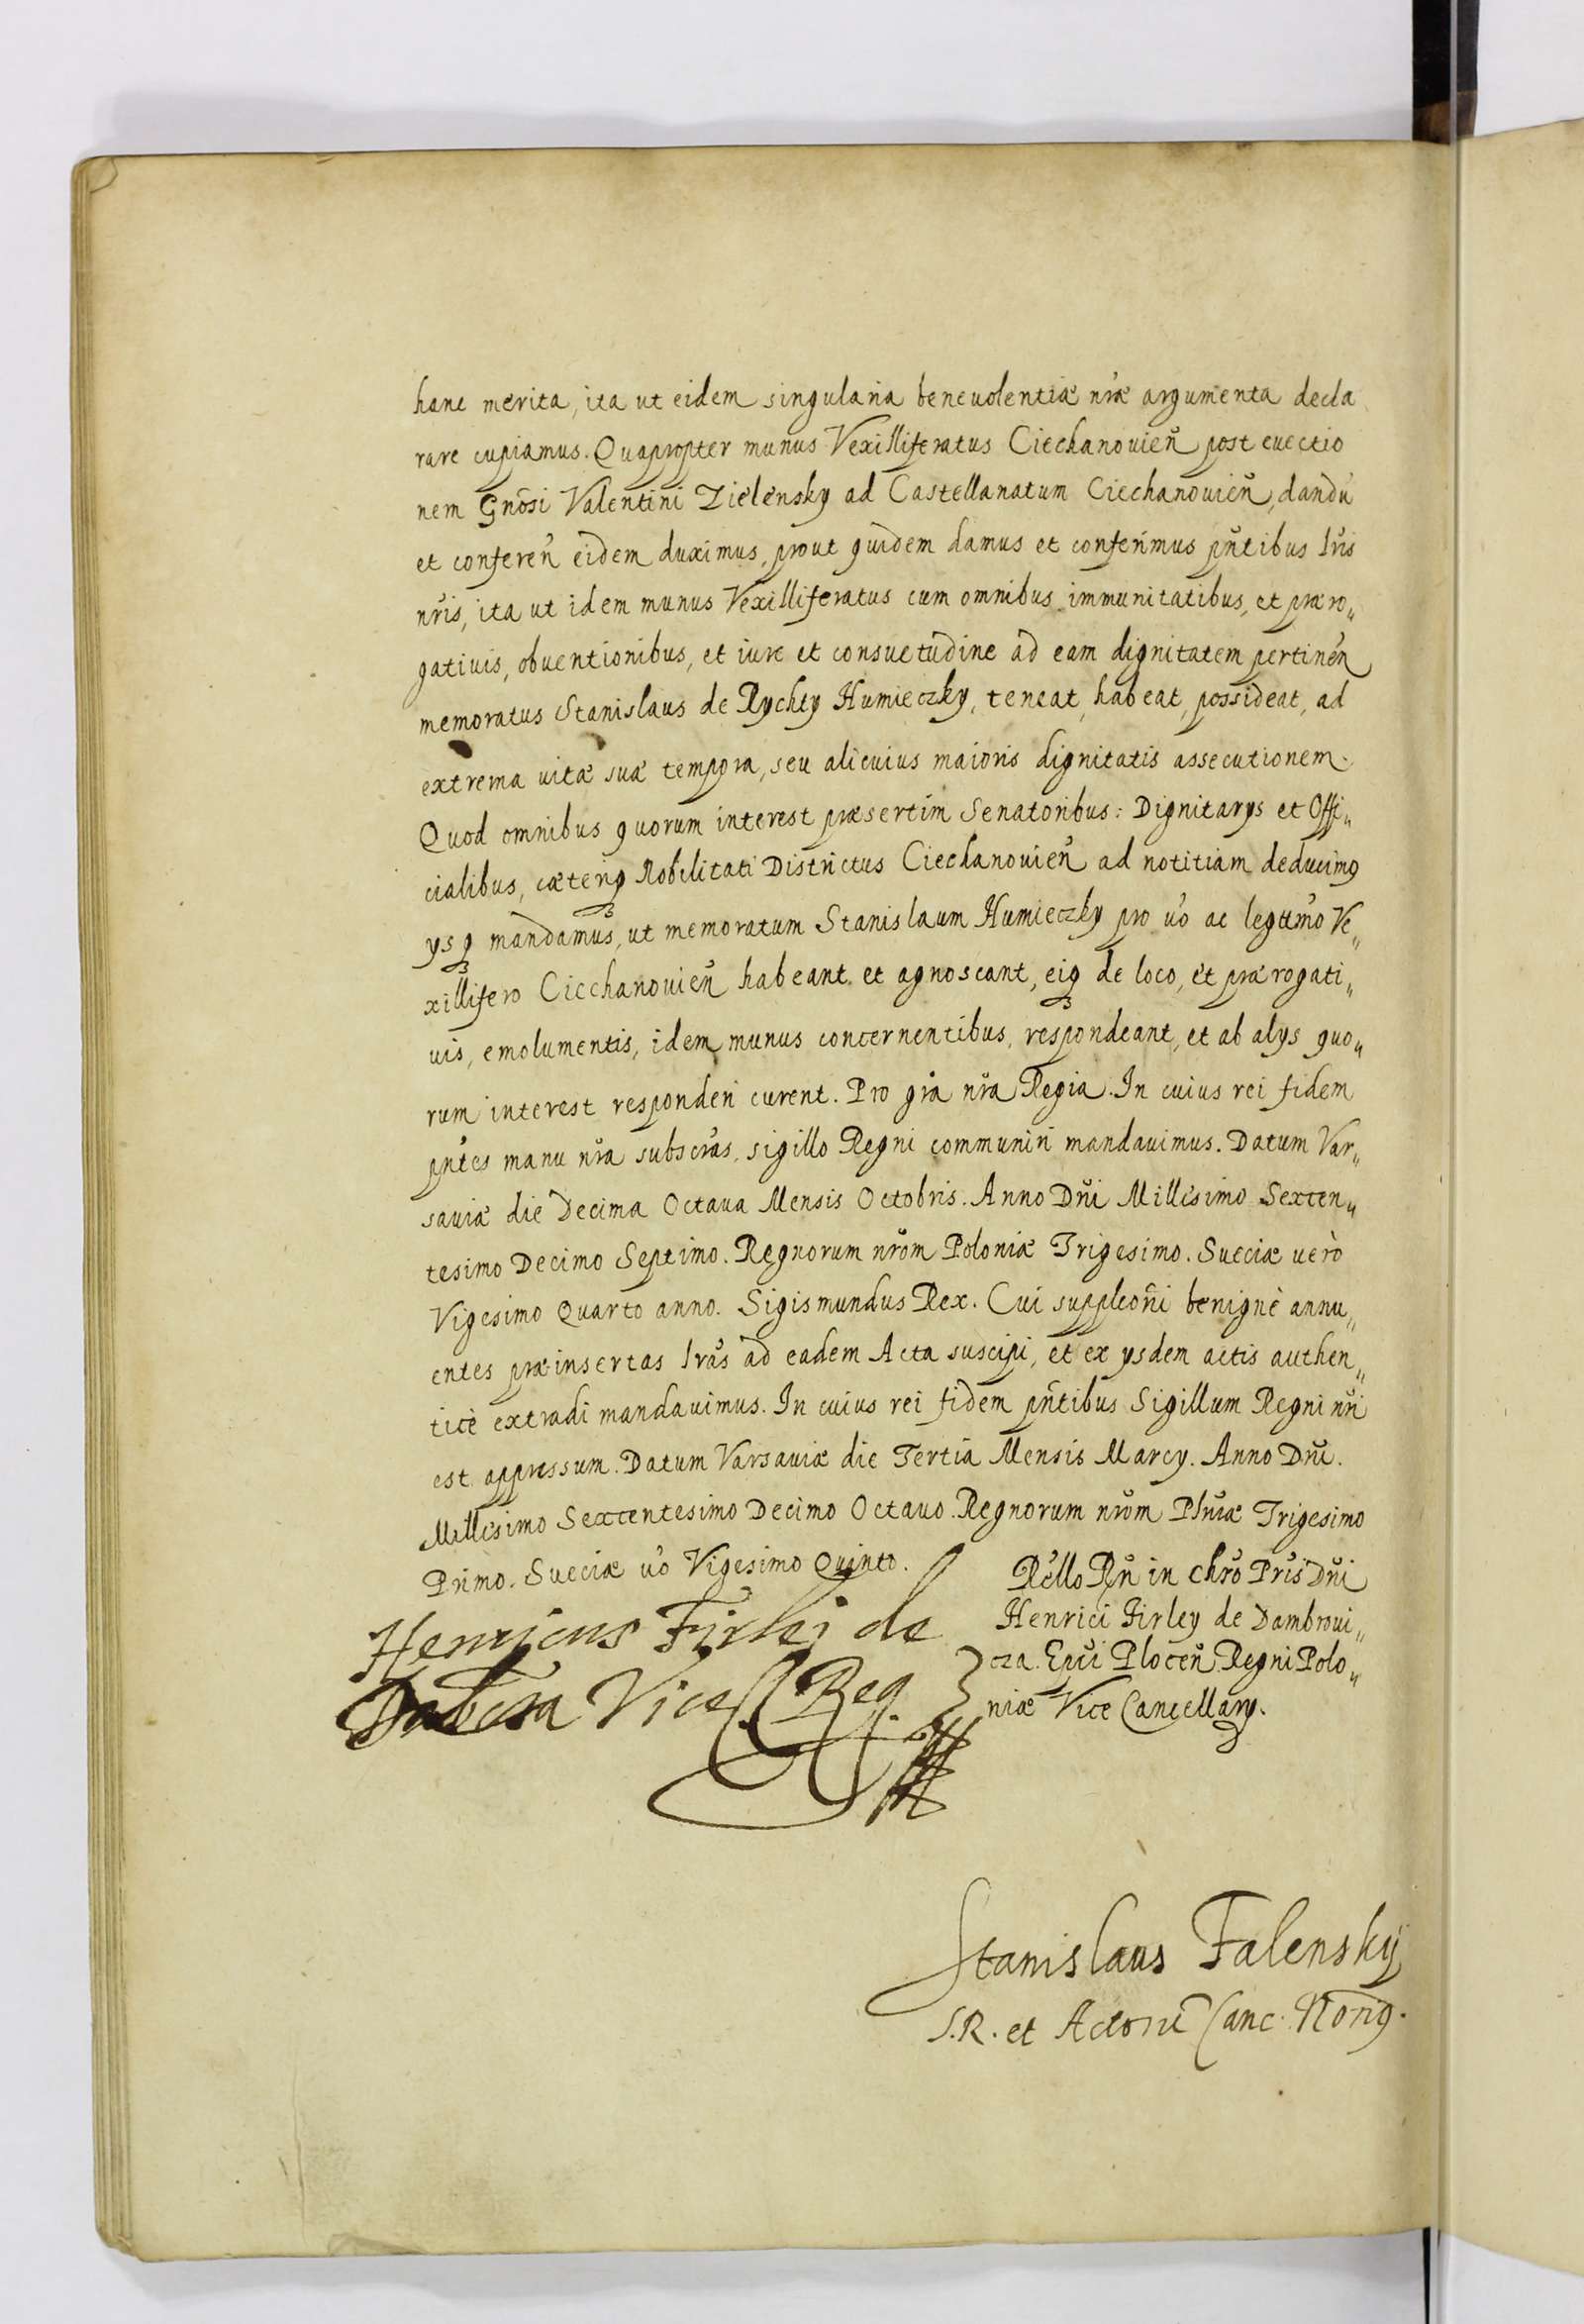 hanc merita, ita ut eidem singularia beneuolentiæ nr̃æ argumenta decla
rare cupiamus. Quapropter munus Vexilliferatus Ciechanouien̄ post euectio
nem Gnōsi Valentini Zielensky ad Castellanatum Ciechanouien̄, dandū
et conferen̄ eidem duximus, prout quidem damus et conferimus pn̄tibus lr̄is
nr̄is, ita ut idem munus Vexilliferatus cum omnibus immunitatibus, et præro„
gatiuis, obuentionibus, et iure et consuetudine ad eam dignitatem pertinen̄
memoratus Stanislaus de Rychty Humieczky, teneat, habeat, possideat, ad
extrema uitæ suæ tempora, seu alicuius maioris dignitatis assecutionem.
Quod omnibus quorum interest præsertim Senatoribus: Dignitarys et Offi„
cialibus, cæteriq₃ Nobilitati Districtus Ciechanouien̄ ad notitiam deducimꝰ
ysq₃ mandamus, ut memoratum Stanislaum Humieczky pro ūo ac legitt̄mo Ve„
xillifero Ciechanouien̄ habeant et agnoscant, eiq₃ de loco, et prærogati„
uis, emolumentis, idem munus concernentibus, respondeant, et ab alys quo„
rum interest responderi curent. Pro gr̄a nr̄a Regia. In cuius rei fidem
pn̄tes manu nr̄a subscr̄as, sigillo Regni communiri mandauimus. Datum Var„
sauiæ die Decima Octaua Mensis Octobris. Anno Dn̄i Millesimo Sexcen„
tesimo Decimo Septimo. Regnorum nr̄om Poloniæ Trigesimo. Sueciæ uerò
Vigesimo Quarto anno. Sigismundus Rex. Cui suppleōni benignè annu„
entes præinsertas lr̄as ad eadem Acta suscipi, et ex ysdem actis authen„
ticè extradi mandauimus. In cuius rei fidem pn̄tibus Sigillum Regni nr̄i
est appressum. Datum Varsauiæ die Tertia Mensis Marcy. Anno Dn̄i.
Millesimo Sexcentesimo Decimo Octauo. Regnorum nr̄om Pln̄iæ Trigesimo
Primo. Sueciæ ūo Vigesimo Quinto.
Henricus Firlej de
Dabrcza Vice C. Reg.
Rēllo Rn̄ in chr̄o Pr̄is Dn̄i
Henrici Firley de Dambroui„
cza. Ep̄i Plocen̄ Regni Polo„
niæ Vice Cancellary.
Stanislaus Falensky
S.R. et Actorū Canc.